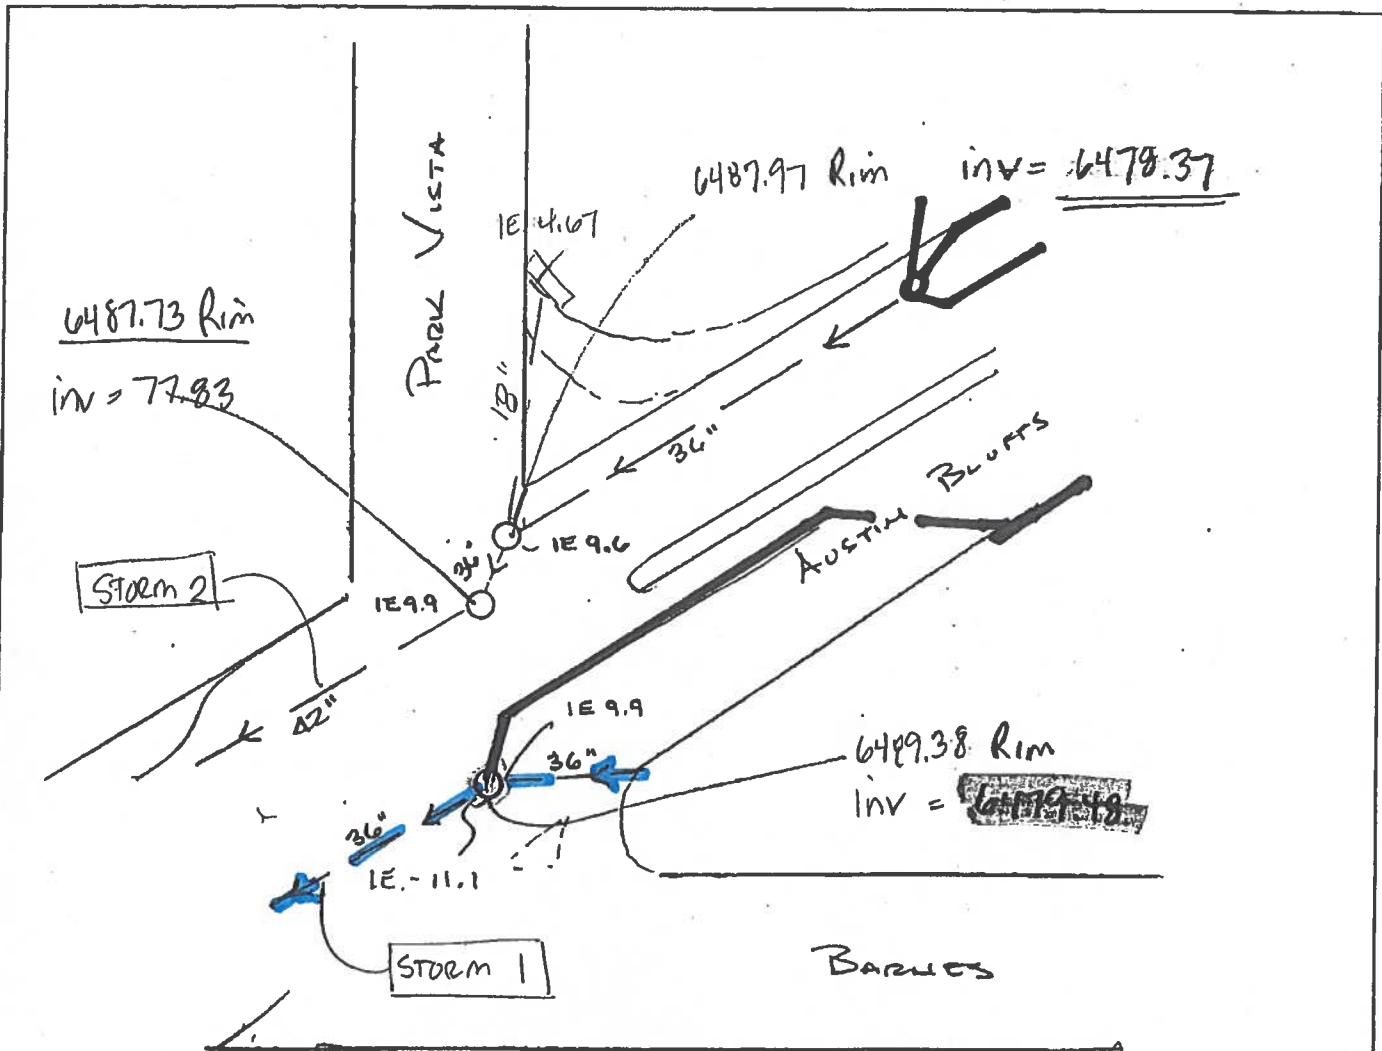 6487.97 Rim inv = 6478.37
PARK VISTA
IE 4.67
6487.73 Rim
inv = 77.83
18"
36"
AUSTIN BLUFFS
IE 9.6
36"
STORM 2
IE 9.9
42"
IE 9.9
36"
6489.38 Rim
inv = 6479.48
36"
IE. - 11.1
STORM 1
BARNES